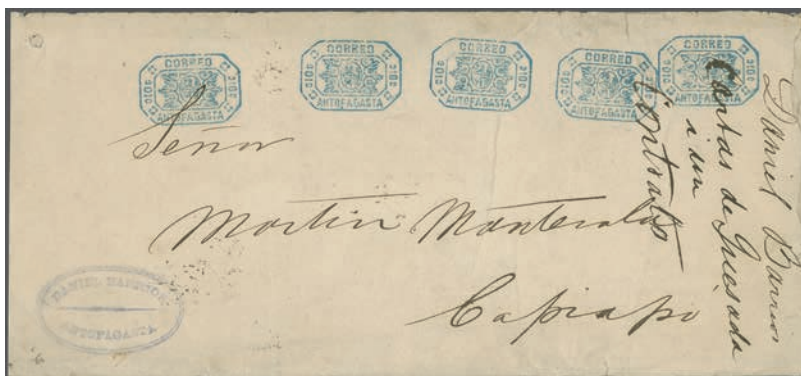 CORREO
ANTOFAGASTA
CORREO
ANTOFAGASTA
CORREO
ANTOFAGASTA
CORREO
ANTOFAGASTA
CORREO
ANTOFAGASTA
Señor
Martin Manterola
Copiapó
DANIEL BARRIOS
ANTOFAGASTA
Daniel Barrios
Cartas de Quesada
i un
Contrato